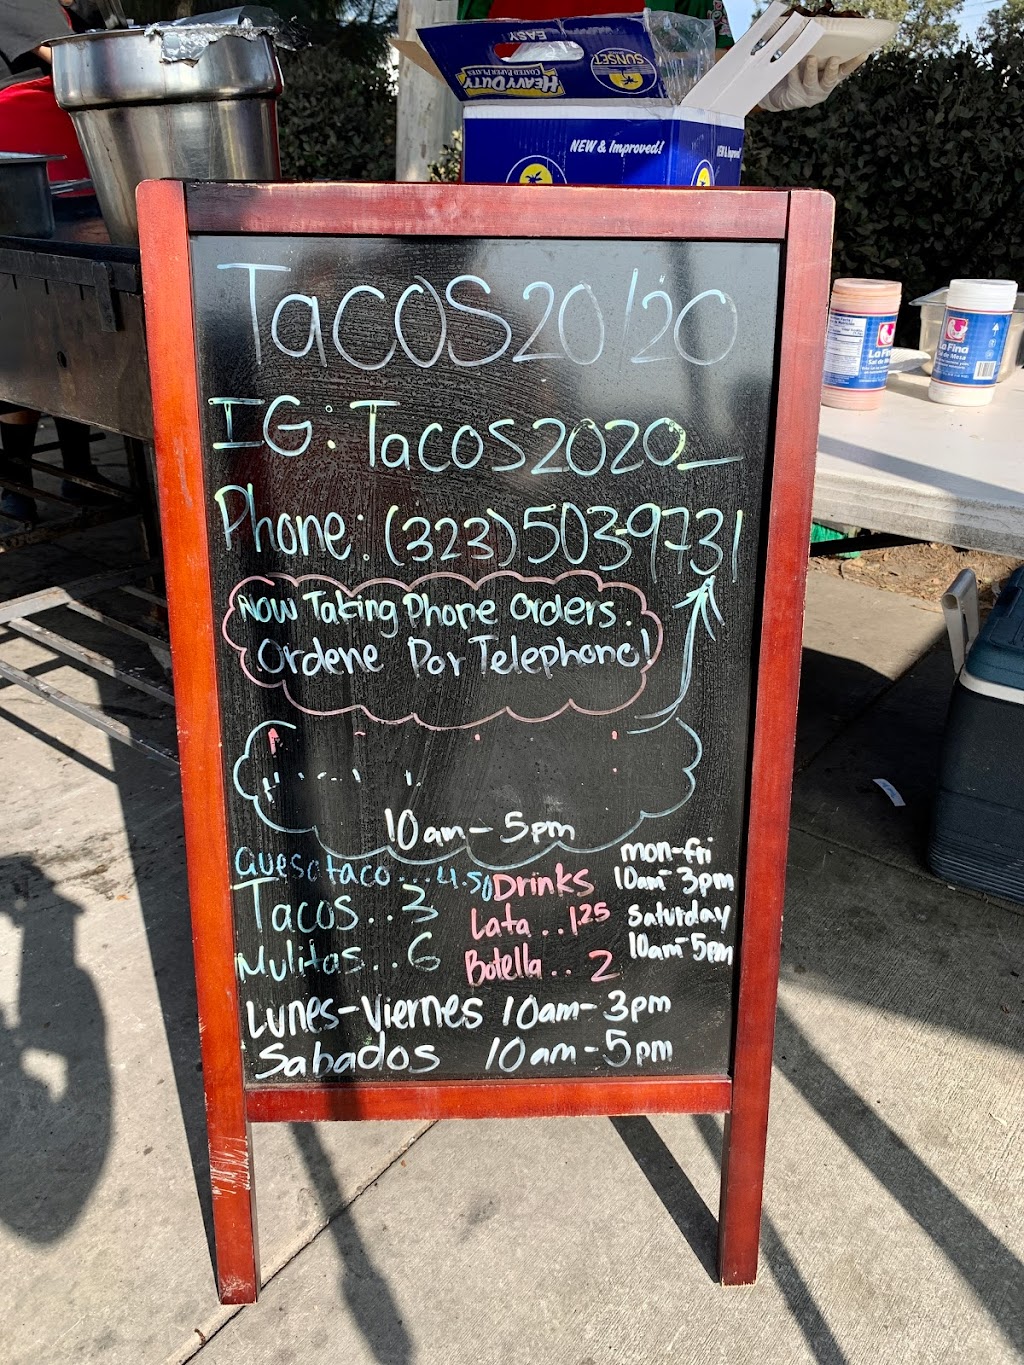 EASY
HEAVY DUTY
COATED PAPER PLATES
SUNSET
NEW & Improved!
TACOS 20/20
IG: TACOS2020_
Phone: (323) 503-9731
Now Taking Phone Orders.
Ordene Por Telephono!
10am - 5pm
Quesotaco...4.50
Tacos..3
Mulitas..6
Drinks
Lata..1.25
Botella..2
mon-fri
10am-3pm
Saturday
10am-5pm
Lunes-Viernes 10am-3pm
Sabados 10am-5pm
La Fina
Sal de Mesa
La Fina
Sal de Mesa